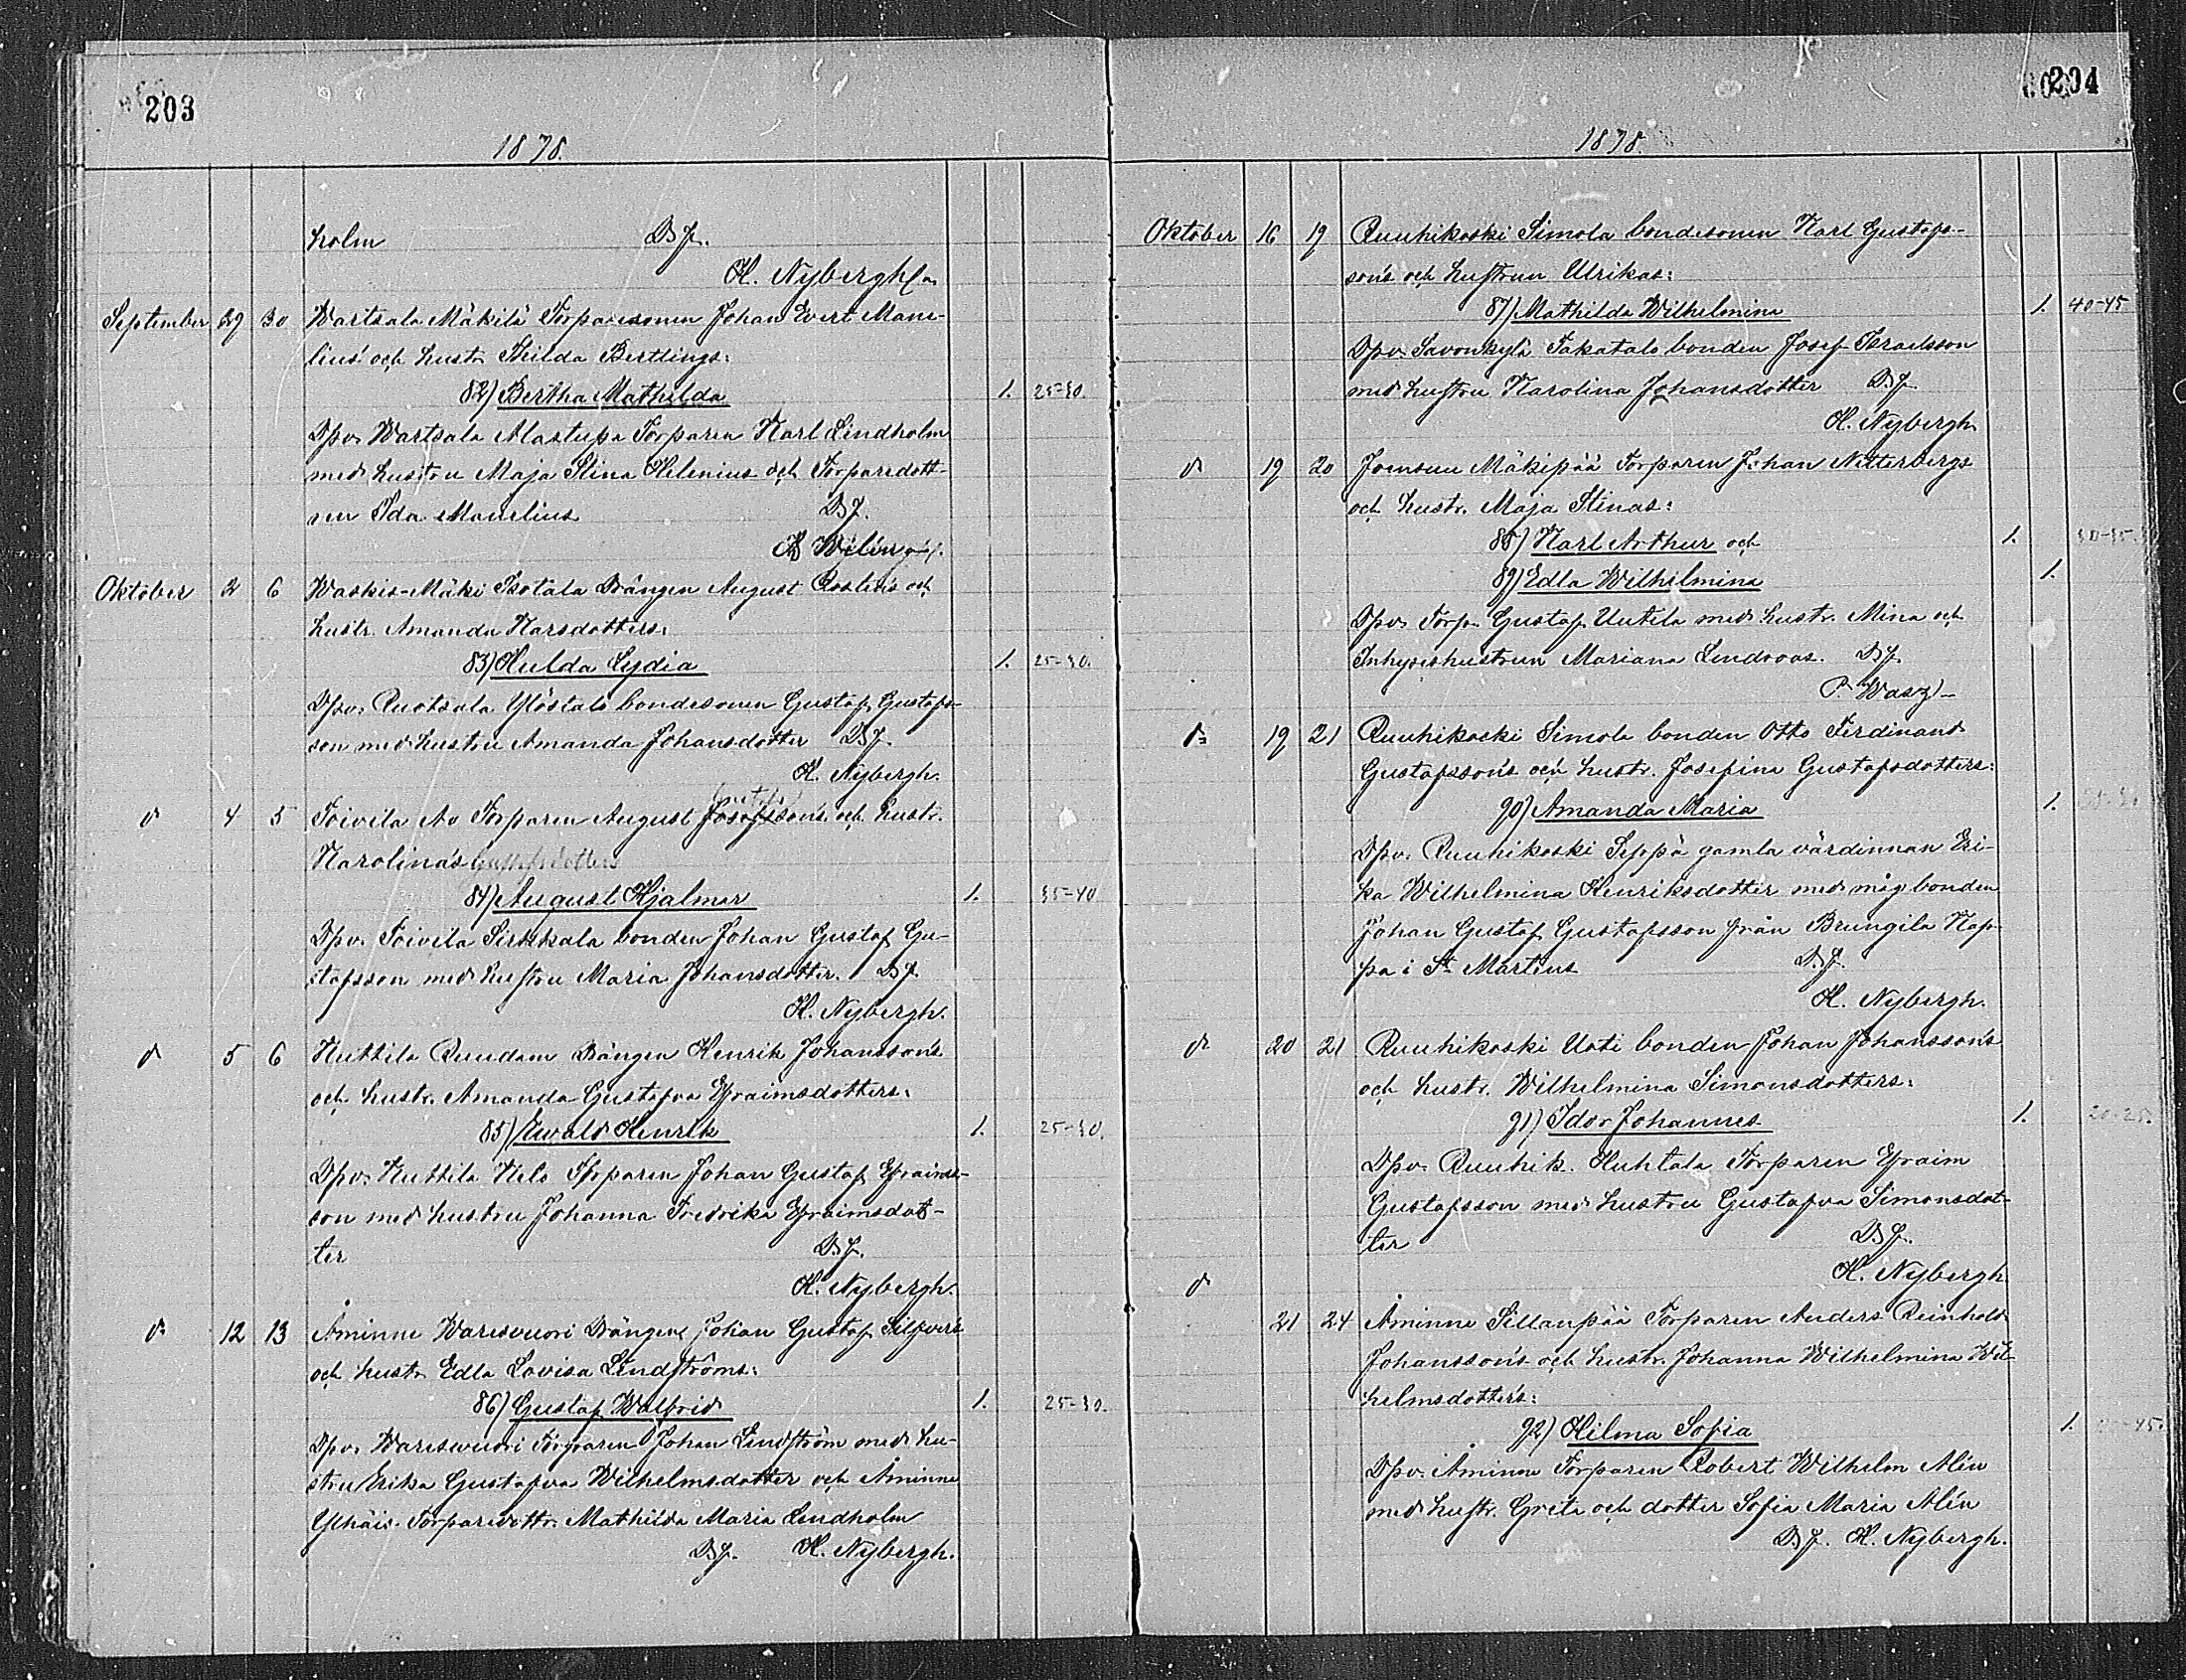 203
1878.
holm D. J.
H. Nybergh
September 29 30 Wartsala Mäkilä Torparesonen Johan Evert Mane-
lius' och hustr. Hilda Bertlings:
82) Bertha Mathilda 1. 25-30.
Dpv. Wartsala Alastupa Torparen Karl Lindholm
med hustru Maja Stina Helenius och Torparedott-
ren Ida Manelius D. J.
Wilén
Oktober 2 6 Waskis-Mäki Isotala Drängen August Roslins och
hustr. Amanda Karsdotters:
83) Hulda Lydia 1. 25-30.
Dpv. Ruotsala Ylöstalo bondesonen Gustaf Gustafs-
son med hustru Amanda Johansdotter D. J.
H. Nybergh.
d:o 4 5 Toivila Av Torparen August Josefssons och hustr.
Karolinas Gustafsdotters
84) August Hjalmar 1. 35-40
Dpv. Toivila Sirkkala bonden Johan Gustaf Gu-
stafsson med hustru Maria Johansdotter. D. J.
H. Nybergh.
d:o 5 6 Huttila Ruudam Drängen Henrik Johansson's
och hustr. Amanda Gustafva Efraimsdotters:
85) Ewald Henrik 1. 25-30.
Dpv. Huttila Kelo Torparen Johan Gustaf Efraims-
son med hustru Johanna Fredrika Efraimsdot-
ter D. J.
H. Nybergh.
d:o 12 13 Åminne Waresvuori Drängen Johan Gustaf Silfvers
och hustr. Edla Lovisa Lindströms:
86) Gustaf Walfrid 1. 25-30.
Dpv. Waresvuori Torparen Johan Lindström med hu-
stru Erika Gustafva Wilhelmsdotter och Åminne
Ylhäis Torparedottr. Mathilda Maria Lindholm
D. J. H. Nybergh.
204
1878.
Oktober 16 19 Ruuhikoski Simola bondesonen Karl Gustafs-
sons och hustrun Ulrikas:
87) Mathilda Wilhelmina 1. 40-45
Dpv. Savonkylä Takatalo bonden Josef Israelsson
med hustru Karolina Johansdotter D. J.
H. Nybergh.
d:o 19 20 Joensuu Mäkipää Torparen Johan Netterbergs
och hustr. Maja Stinas:
88) Karl Arthur och 1. 30-35.
89) Edla Wilhelmina 1.
Dpv. Torp. Gustaf Uutela med hustr. Mina och
Inhyseshustrun Mariana Lindroos. D. J.
d:o 19 21 Ruuhikoski Simola bonden Otto Ferdinand
Gustafssons och hustr. Josefina Gustafsdotters:
90) Amanda Maria 1.
Dpv. Ruuhikoski Seppä gamla värdinnan Eri-
ka Wilhelmina Henriksdotter med måg bonden
Johan Gustaf Gustafsson från Brungila Kap-
pa i St. Mårtens D. J.
H. Nybergh.
d:o 20 21 Ruuhikoski Uoti bonden Johan Johansson's
och hustr. Wilhelmina Simonsdotters:
91) Idor Johannes 1. 20-25.
Dpv. Ruuhik. Huhtala Torparen Efraim
Gustafsson med hustru Gustafva Simonsdot-
ter D. J.
H. Nybergh
d:o
21 24 Åminne Sillanpää Torparen Anders Reinhold
Johansson's och hustr. Johanna Wilhelmina Wil-
helmsdotter's:
92) Hilma Sofia 1.
Dpv. Åminne Torparen Robert Wilhelm Alén
med hustr. Greta och dotter Sofia Maria Alén
D. J. H. Nybergh.